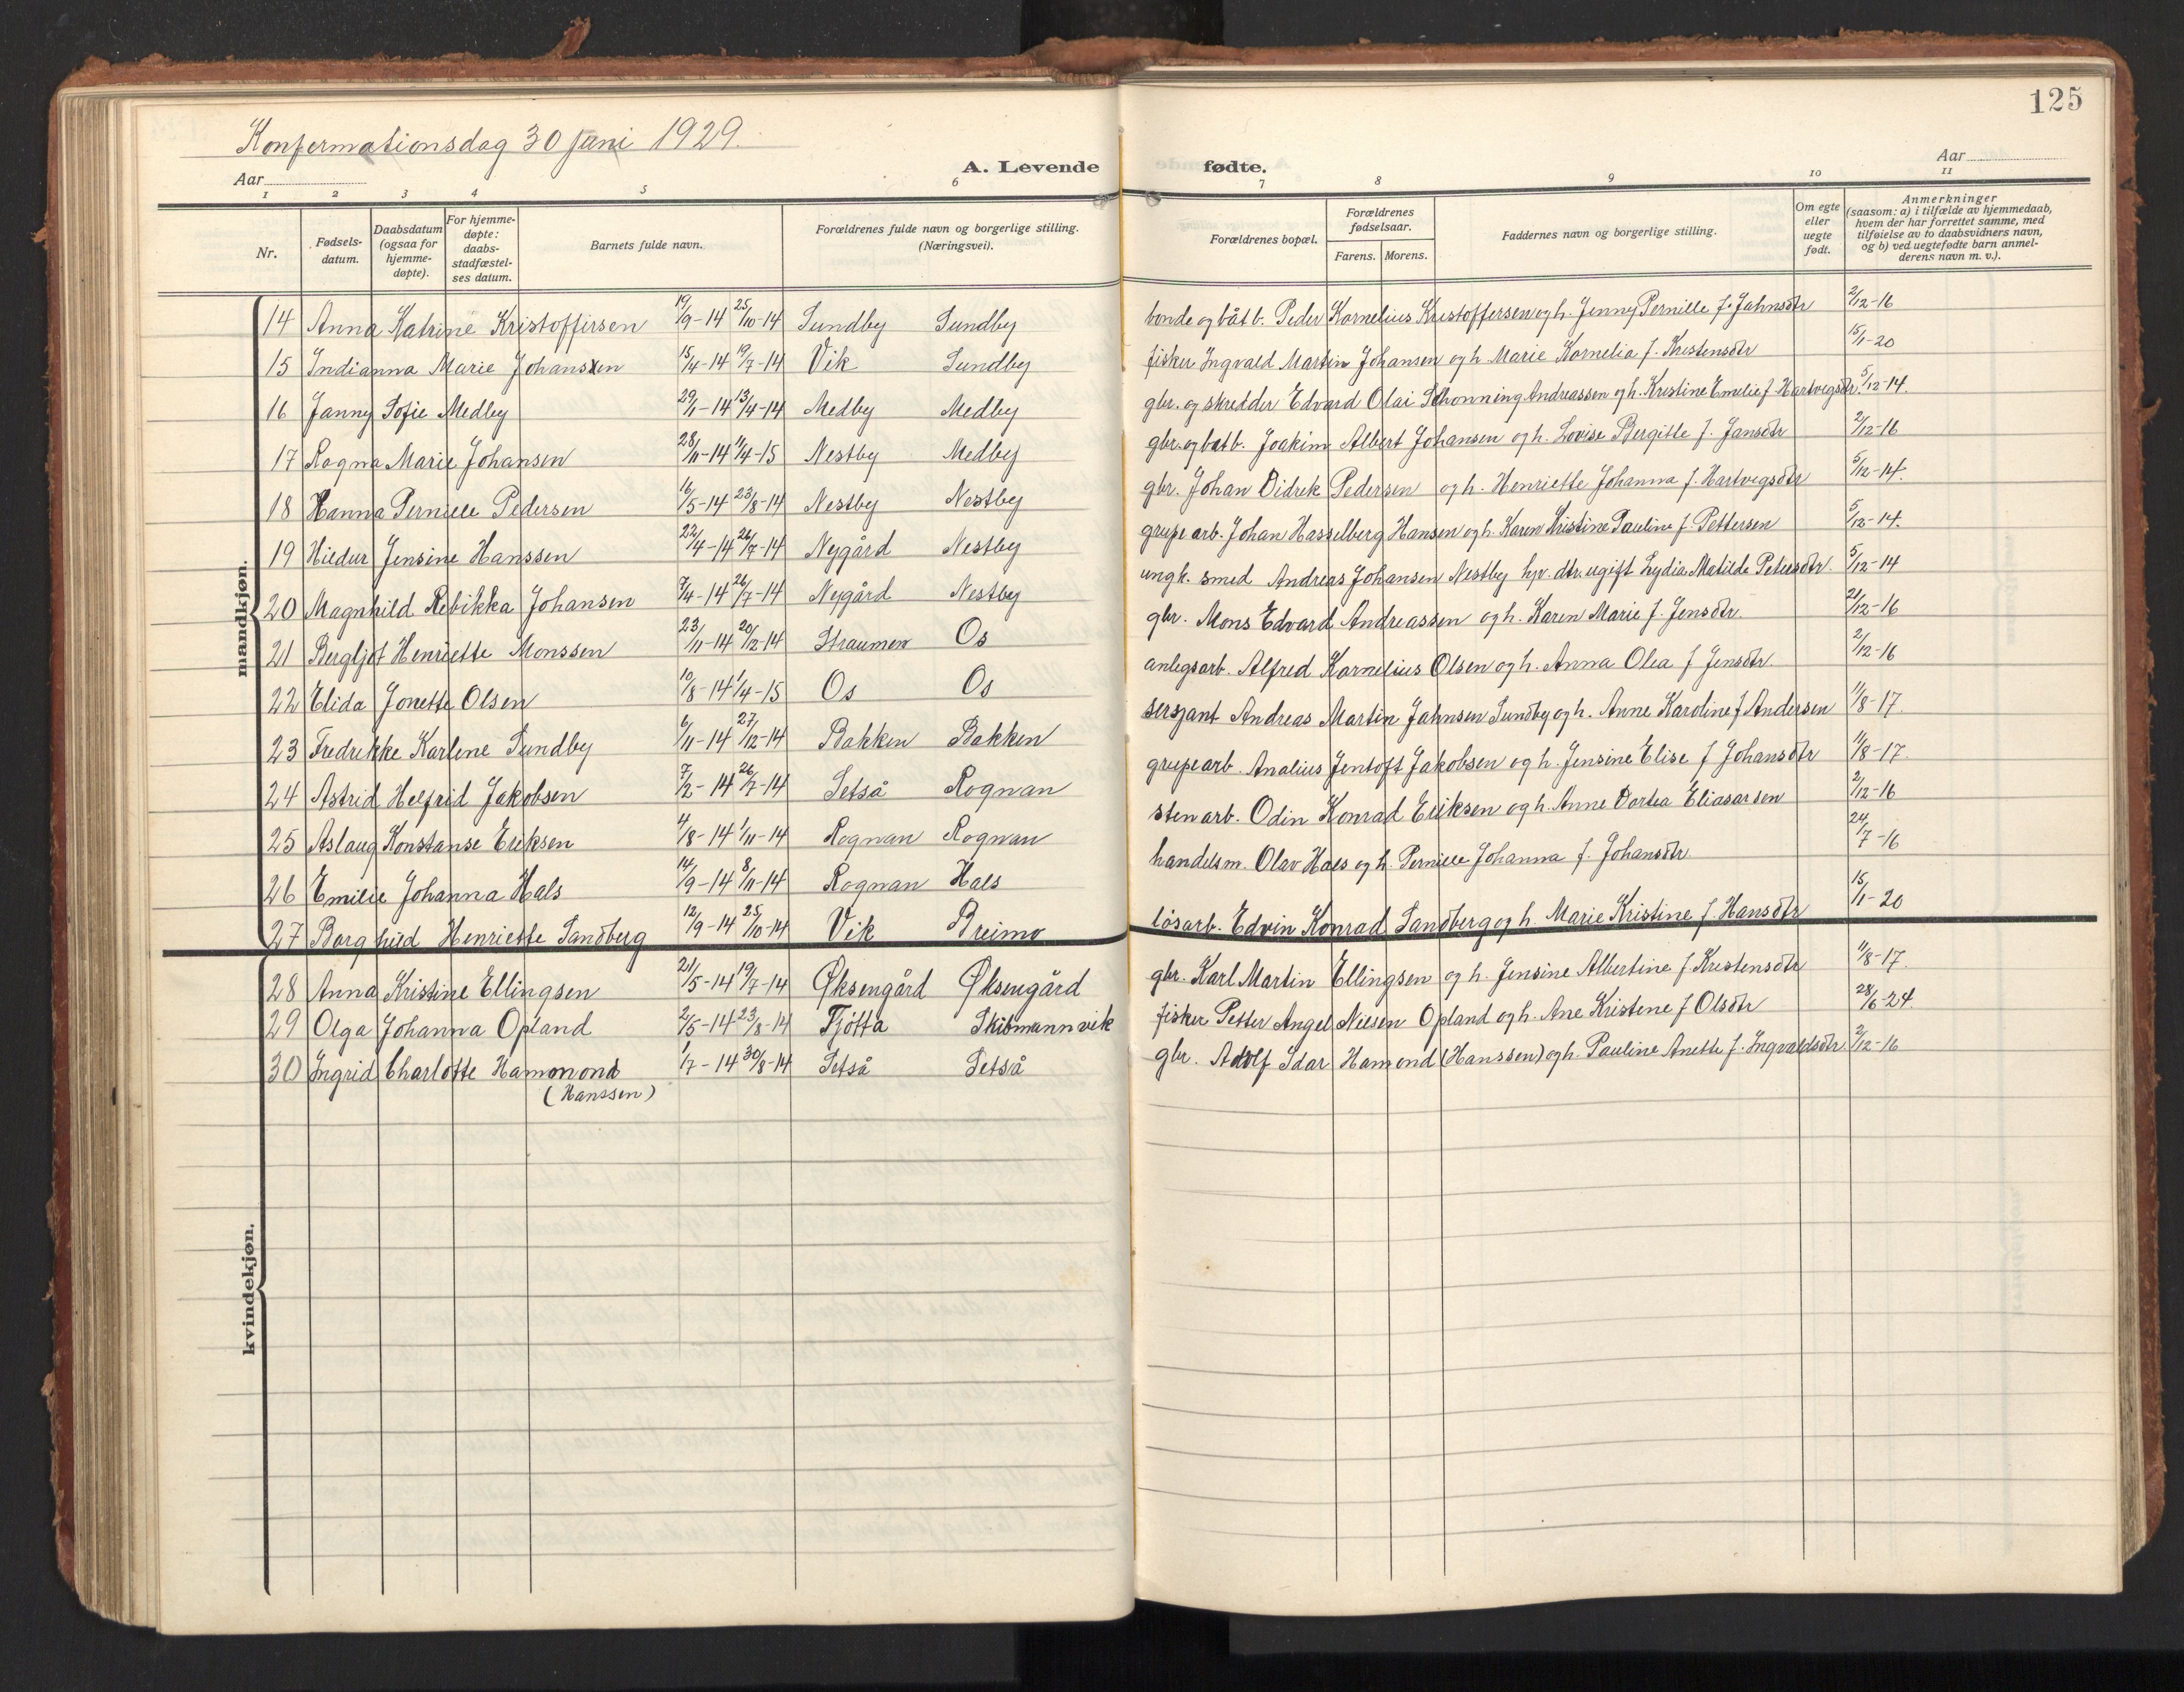 125
Konfermationsdag 30 juni 1929.
A. Levende fødte.
Aar
Aar
1 2 3 4 5 6 7 8 9 10 11
Nr.
Fødsels-
datum.
Daabsdatum
(ogsaa for
hjemme-
døpte).
For hjemme-
døpte:
daabs-
stadfæstel-
ses datum.
Barnets fulde navn.
Forældrenes fulde navn og borgerlige stilling.
(Næringsvei).
Forældrenes bopæl.
Forældrenes
fødselsaar.
Farens. Morens.
Faddernes navn og borgerlige stilling.
Om egte
eller
uegte
født.
Anmerkninger
(saasom: a) i tilfælde av hjemmedaab,
hvem der har forrettet samme, med
tilføielse av to daabsvidners navn,
og b) ved uegtefødte barn anmel-
derens navn m. v.).
mandkjøn.
14 Anna Katrine Kristoffersen 19/9-14 25/10-14 Sundby Sundby bonde og båtb. Peder Kornelius Kristoffersen og h. Jenny Pernille f. Jahnsdtr 2/12-16
15 Indianna Marie Johansen 15/4-14 19/7-14 Vik Sundby fisker Ingvald Martin Johansen og h. Marie Kornelia f. Kristensdtr 15/1-20
16 Janny Sofie Medby 29/1-14 13/4-14 Medby Medby gbr. og skredder Edvard Olai Schonning Andreassen og h. Kristine Emelie f. Hartvigsdtr. 5/12-14.
17 Ragna Marie Johansen 28/11-14 11/4-15 Nestby Medby gbr. og båtb. Joakim Albert Johansen og h. Lovise Bergitte f. Jansdtr 2/12-16
18 Hanna Pernille Pedersen 16/5-14 23/8-14 Nestby Nestby gbr. Johan Didrik Pedersen og h. Henriette Johanna f. Hartvigsdtr 5/12-14.
19 Hildur Jensine Hanssen 22/4-14 26/7-14 Nygård Nestby grupearb. Johan Hasselberg Hansen og h. Karen Kristine Pauline f. Pettersen 5/12-14.
20 Magnhild Rebikka Johansen 7/4-14 26/7-14 Nygård Nestby ungk. smed Andreas Johansen Nestby hjv. dtr. ugift Lydia Matilde Petersdtr. 5/12-14
21 Bergljot Henriette Monssen 23/11-14 20/12-14 Straumen Os gbr. Mons Edvard Andreassen og h. Karen Marie f. Jensdtr. 21/12-16
22 Elida Jonette Olsen 10/8-14 1/4-15 Os Os anlegsarb. Alfred Kornelius Olsen og h. Anna Olea f Jensdtr. 2/12-16
23 Fredrikke Karlene Sundby 6/11-14 27/12-14 Bakken Bakken sersjant Andreas Martin Jahnsen Sundby og h. Anne Karoline f Andersen 11/8-17.
24 Astrid Helfrid Jakobsen 7/2-14 26/7-14 Setså Rognan grupearb. Analius Jentoft Jakobsen og h. Jensine Elise f Johansdtr 11/8-17.
25 Aslaug Konstanse Eriksen 4/8-14 1/11-14 Rognan Rognan stenarb. Odin Konrad Eriksen og h. Anne Dortea Eliasarsen 2/12-16
26 Emilie Johanna Hals 14/9-14 8/11-14 Rognan Hals handelsm. Olav Hals og h. Pernille Johanna f. Johansdtr. 24/7-16
27 Borghild Henriette Sandberg 12/9-14 25/10-14 Vik Breimo løsarb. Edvin Konrad Sandberg og h. Marie Kristine f. Hansdtr 15/1-20
kvindekjøn.
28 Anna Kristine Ellingsen 21/5-14 19/7-14 Øksengård Øksengård gbr. Karl Martin Ellingsen og h. Jensine Albertine f Kristensdtr 11/8-17.
29 Olga Johanna Opland 2/5-14 23/8-14 Tjötta Skibmannvik fisker Petter Angel Nilsen Opland og h. Ane Kristine f Olsdtr 28/6-24
30 Ingrid Charlotte Hammond 1/7-14 30/8-14 Setså Setså gbr. Adolf Idar Hamond (Hanssen) og h. Pauline Anette f. Ingvaldsdtr. 2/12-16
(Hanssen)